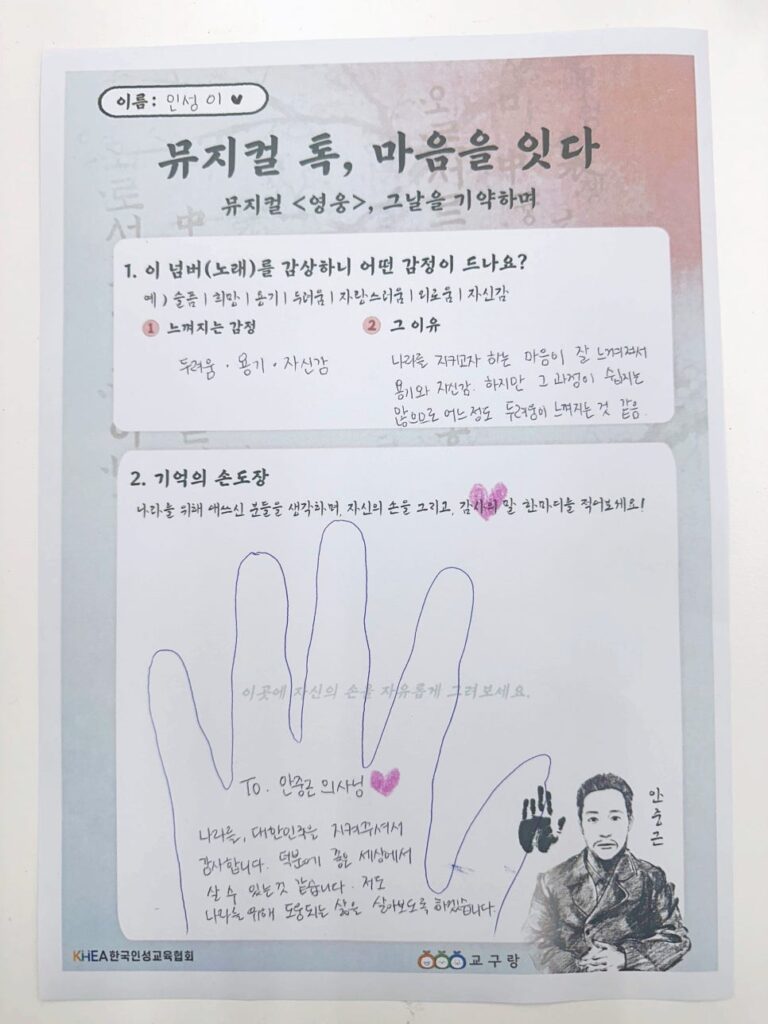 이름: 인성이 ♥
뮤지컬 톡, 마음을 잇다
뮤지컬 <영웅>, 그날을 기약하며
1. 이 넘버(노래)를 감상하니 어떤 감정이 드나요?
예) 슬픔 | 희망 | 용기 | 두려움 | 자랑스러움 | 외로움 | 자신감
1 느껴지는 감정
두려움 · 용기 · 자신감
2 그 이유
나라를 지키고자 하는 마음이 잘 느껴져서
용기와 자신감. 하지만 그 과정이 쉽지는
않으므로 어느정도 두려움이 느껴지는 것 같음.
2. 기억의 손도장
나라를 위해 애쓰신 분들을 생각하며, 자신의 손을 그리고, 감사의 말 한마디를 적어보세요!
이곳에 자신의 손을 자유롭게 그려보세요.
To. 안중근 의사님
나라를, 대한민국을 지켜주셔서
감사합니다. 덕분에 좋은 세상에서
살 수 있는것 같습니다. 저도
나라를 위해 도움되는 삶을 살아보도록 하겠습니다.
안중근
KHEA한국인성교육협회
교구랑